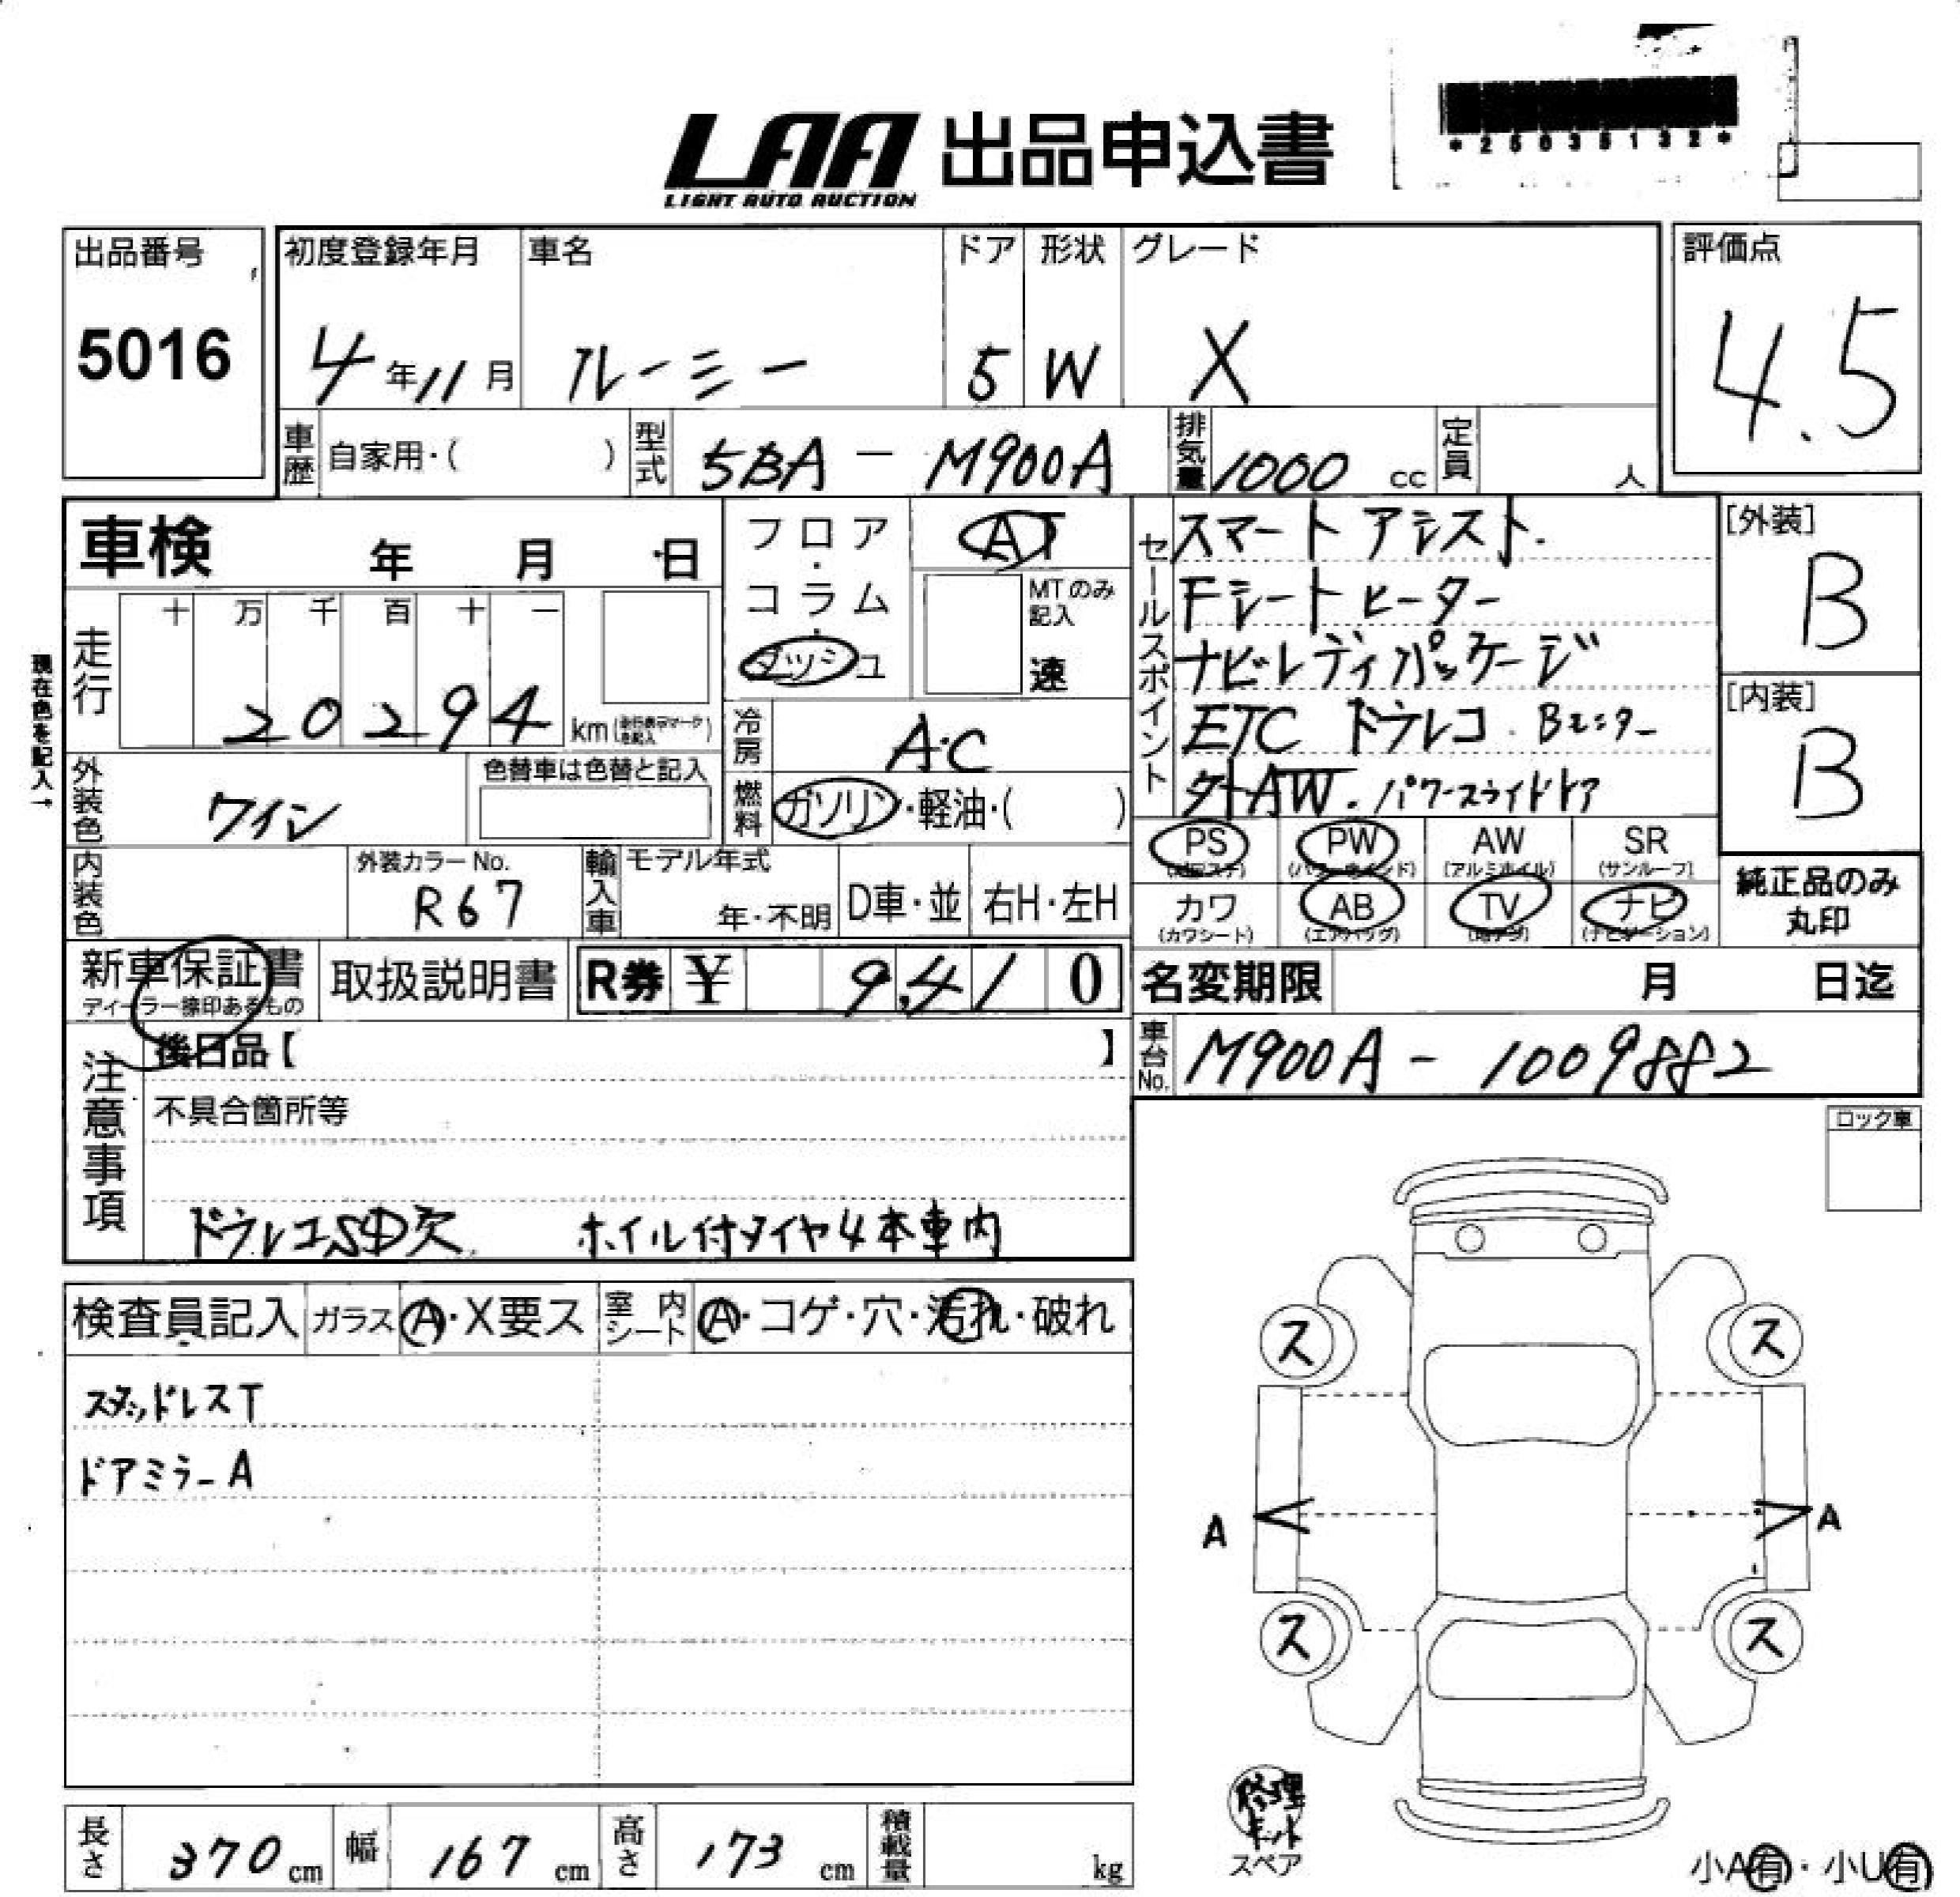 LAA 出品申込書
LIGHT AUTO AUCTION
出品番号
5016
初度登録年月
4年11月
車名
ルーミー
ドア
5
形状
W
グレード
X
評価点
4.5
車歴 自家用・( )
型式 5BA - M900A
排気量 1000 cc
定員 人
車検 年 月 日
フロア・コラム・ダッシュ
AT
MTのみ記入
速
セールスポイント
スマートアシスト.
Fシートヒーター
ナビレディパッケージ
ETC ドラレコ. Bモニター
外AW. パワースライドドア
[外装]
B
[内装]
B
現在色を記入→
走行
十 万 千 百 十 一
20294 km
冷房 AC
外装色 ワイン
色替車は色替と記入
燃料 ガソリン・軽油・( )
PS PW AW SR
(アルミホイル) (サンルーフ)
カワ AB TV ナビ
(カワシート) (エアバッグ) (ナビゲーション)
純正品のみ
丸印
内装色
外装カラーNo.
R67
輸入車
モデル年式
年・不明
D車・並
右H・左H
新車保証書
ディーラー捺印あるもの
取扱説明書
R券 ¥ 9,410
名変期限 月 日迄
車台No. M900A - 1009882
注意事項
後日品【 】
不具合箇所等
ドラレコSD欠 ホイル付タイヤ4本車内
ロック車
検査員記入 ガラス A・X要ス 室内シート A・コゲ・穴・汚れ・破れ
スタッドレスT
ドアミラーA
ス ス
A A
ス ス
修理キット
スペア
小A有・小U有
長さ 370 cm 幅 167 cm 高さ 173 cm 積載量 kg